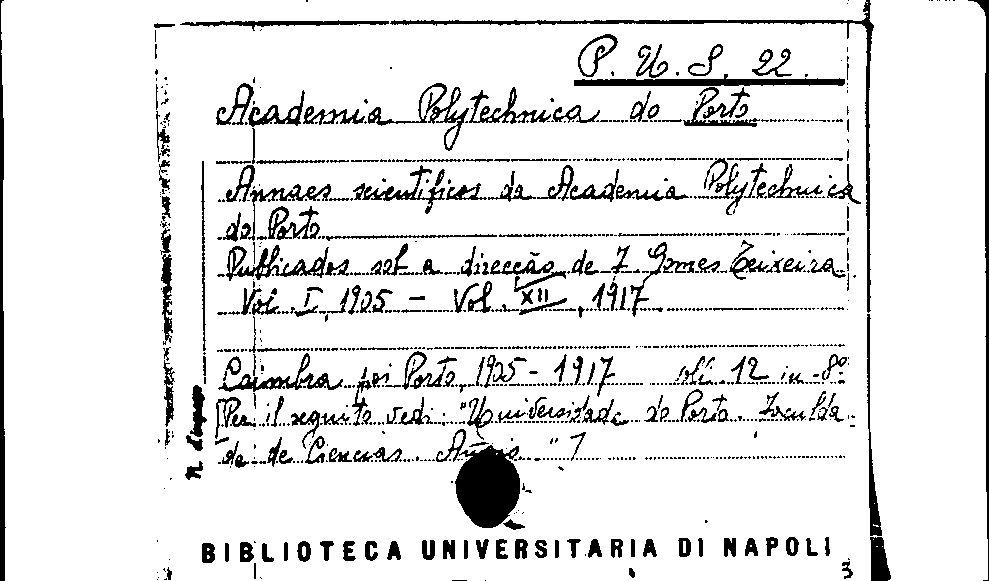 P. U. S. 22.
Academia Polytechnica do Porto
Annaes scientificos da Academia Polytechnica
do Porto
Publicados sob a direcção de F. Gomes Teixeira.
Vol. I, 1905 – Vol. XII, 1917
Coimbra poi Porto, 1905 - 1917 voll. 12 in-8º
[Per il seguito vedi: "Universidade do Porto. Faculda-
de de Ciencias. Anais."]
N. d'ingresso
BIBLIOTECA UNIVERSITARIA DI NAPOLI
3